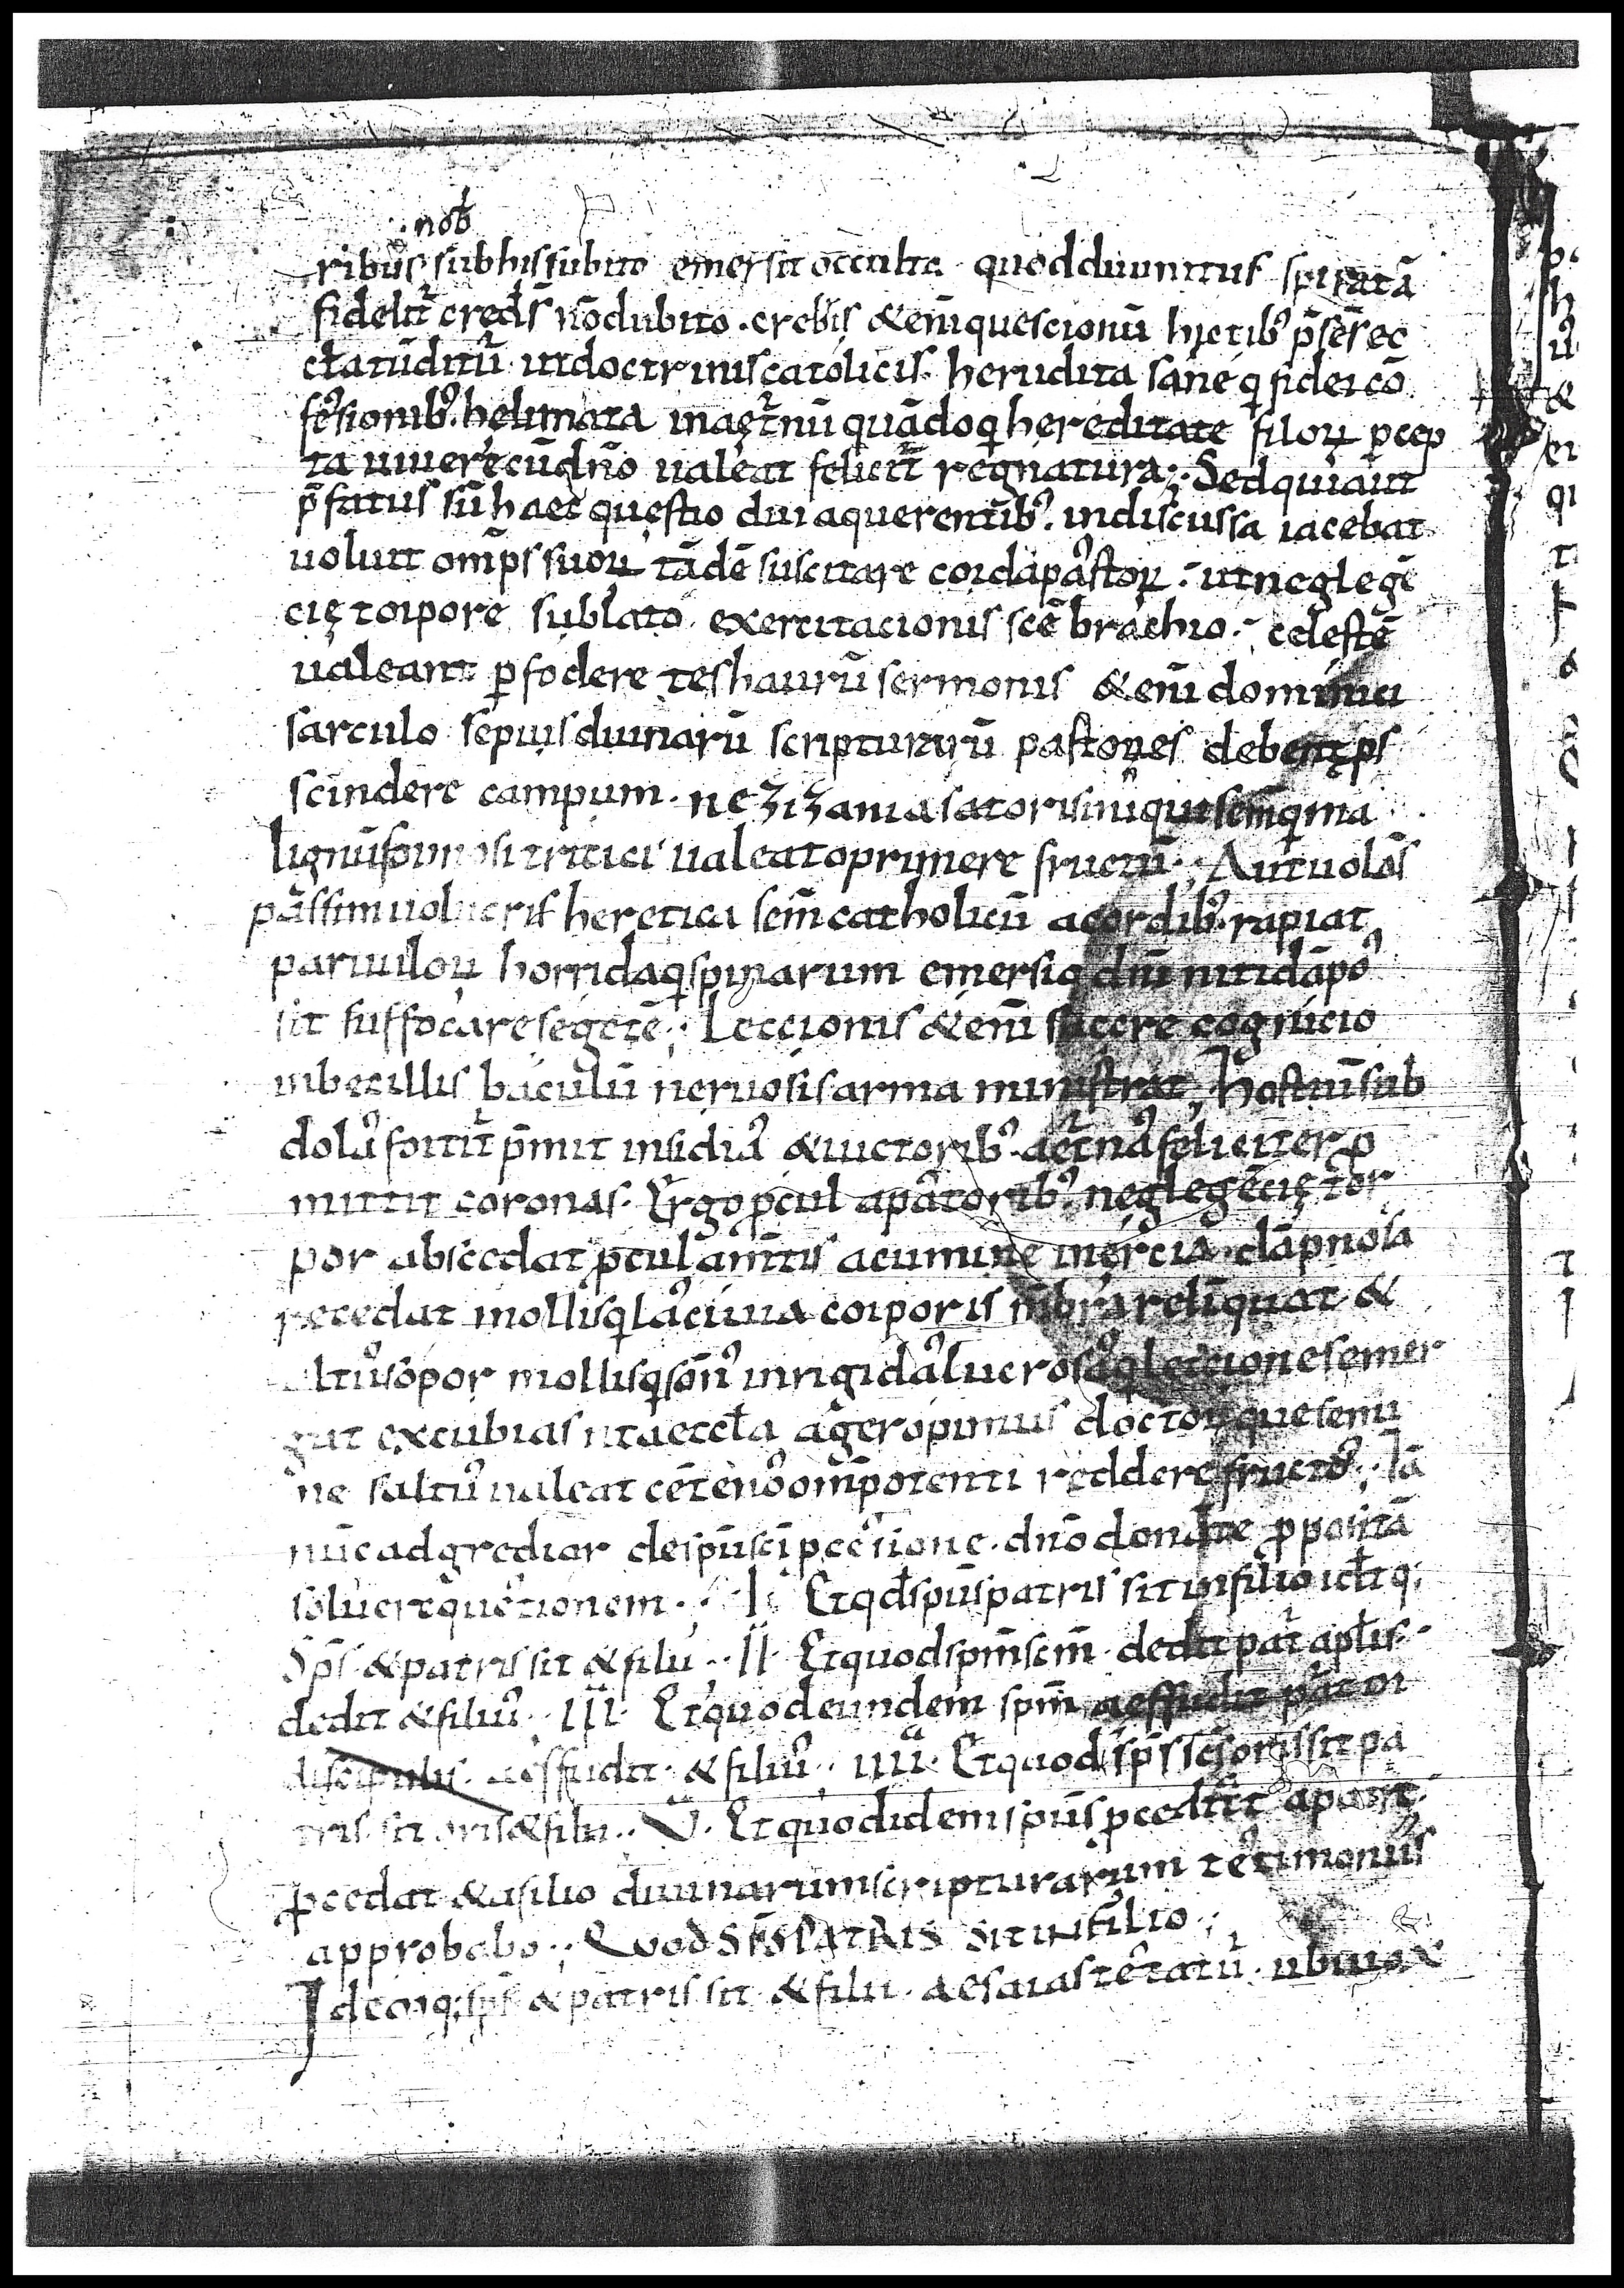 nob̄
ribus sub his subito emersit occulta quod diuinitus spiratā
fidelit̄ cređs nōdubito. crebis &enī quescionū hictib; p̄sēs ec
cłatūditū ut doctrinis catolicis. herudita sane q; fidei cō
fesionib;. helimata inaęt̄nū quādoq; hereditate filoꝝ ꝑcep
ta uiuere cūdn̄o ualeat felicit̄ regnatura;. Sed quia ut
p̄fatus sū haec questio diu aquerentib;. indiscussa iacebat
uoluit om̄ps suoꝝ tādē suscitare corda pastoꝝ. ut neglegē
cię torpore sublato exercitacionis sc̄e brachio. celestē
ualeant ꝑfodere teshaurū sermonis &enī dominici
sarculo sepius diuinarū scripturarū pastores debent ꝓs
scindere campum. ne zizania satoris iniqui semq; ma
lignū tritici ualeat oprimere fructū;. Aut uolās
passim uolucris heretici sem̄ catholicū acordib;. rapiat
paruuloꝝ horridaq; spinarum emersio dn̄i nitidā pos
sit suffocare segetē;. Leccionis &enī sacere cognicio
inbecillis baculū neruosis arma ministrat, hostiū sub
dolas fortit̄ p̄mit insidias &uictorib;. aet̄nas feliciter ꝓ
mittit coronas. Ergo ꝓcul apastorib; neglegēcię tor
por abscedat ꝓcul amentis acumine inercia. dāpnosa
recedat mollisq; lasciuia corporis mēbra relīquat &
altus sopor mollisq; sōn̄us inrigidas lucrosasq; leccionesemer
gat excubias ut aeccła ager opimus doctorū que semi
ne saltus ualeat cētenos om̄potenti reddere fructus;. Iā
nūc adgredior despūsc̄i ꝓcessione. dn̄o donante ꝓpositā
soluere questionem. I. Et qđ spūs patris sit in filio id̄ q;
Sps̄ &patris sit &filii. II. Et quod spm̄ scm̄. dedit pat̄ apłis.
dedit &filius. III. Et quod eundem spm̄ aeffudit pat̄
discipulis. aeffudit &filius. IIII. Et quod sps̄ scs̄ oris sit pa
tris sit oris &filii. V. Et quod idem spūs ꝓcedit apatre.
ꝓcedat &afilio diuinarum scripturarum testimoniis
approbabo;. Quod SP̄S PATRIS sit in filio;.
Ideoq; sps̄ &patris sit &filii. aesaias testatū. ubi